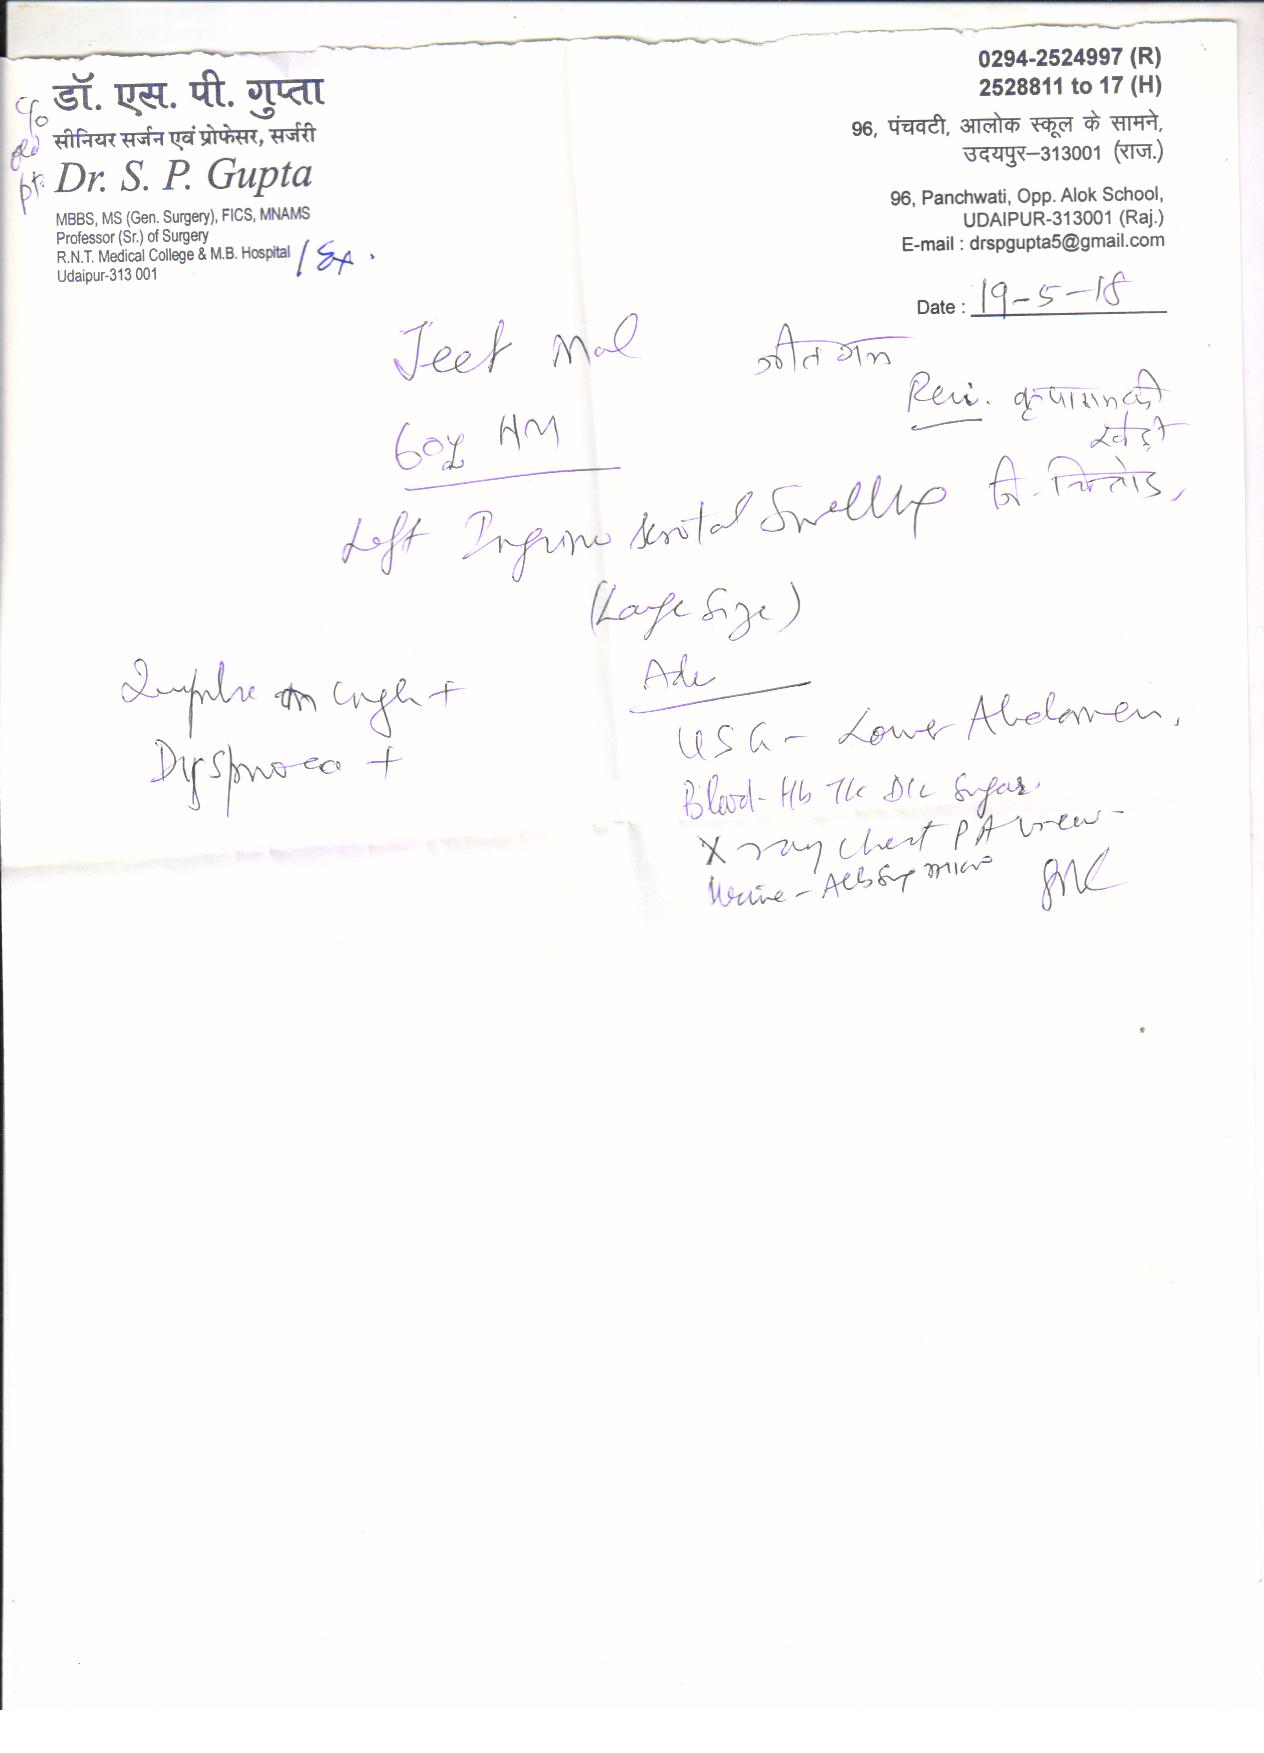 C/o
old
pt.
डॉ. एस. पी. गुप्ता
सीनियर सर्जन एवं प्रोफेसर, सर्जरी
Dr. S. P. Gupta
MBBS, MS (Gen. Surgery), FICS, MNAMS
Professor (Sr.) of Surgery
R.N.T. Medical College & M.B. Hospital / Ex.
Udaipur-313 001
0294-2524997 (R)
2528811 to 17 (H)
96, पंचवटी, आलोक स्कूल के सामने,
उदयपुर–313001 (राज.)
96, Panchwati, Opp. Alok School,
UDAIPUR-313001 (Raj.)
E-mail : drspgupta5@gmail.com
Date : 19-5-18
Jeet Mal जीतमल
60y HM
खेड़ा
Left Inguino scrotal Swelling जि. चित्तोड़,
(Large Size)
Impulse on cough +
Dyspnoea +
Adv
USG - Lower Abdomen,
Blood - Hb Tlc Dlc Sugar.
X ray chest PA view -
Urine - Alb Sug micro